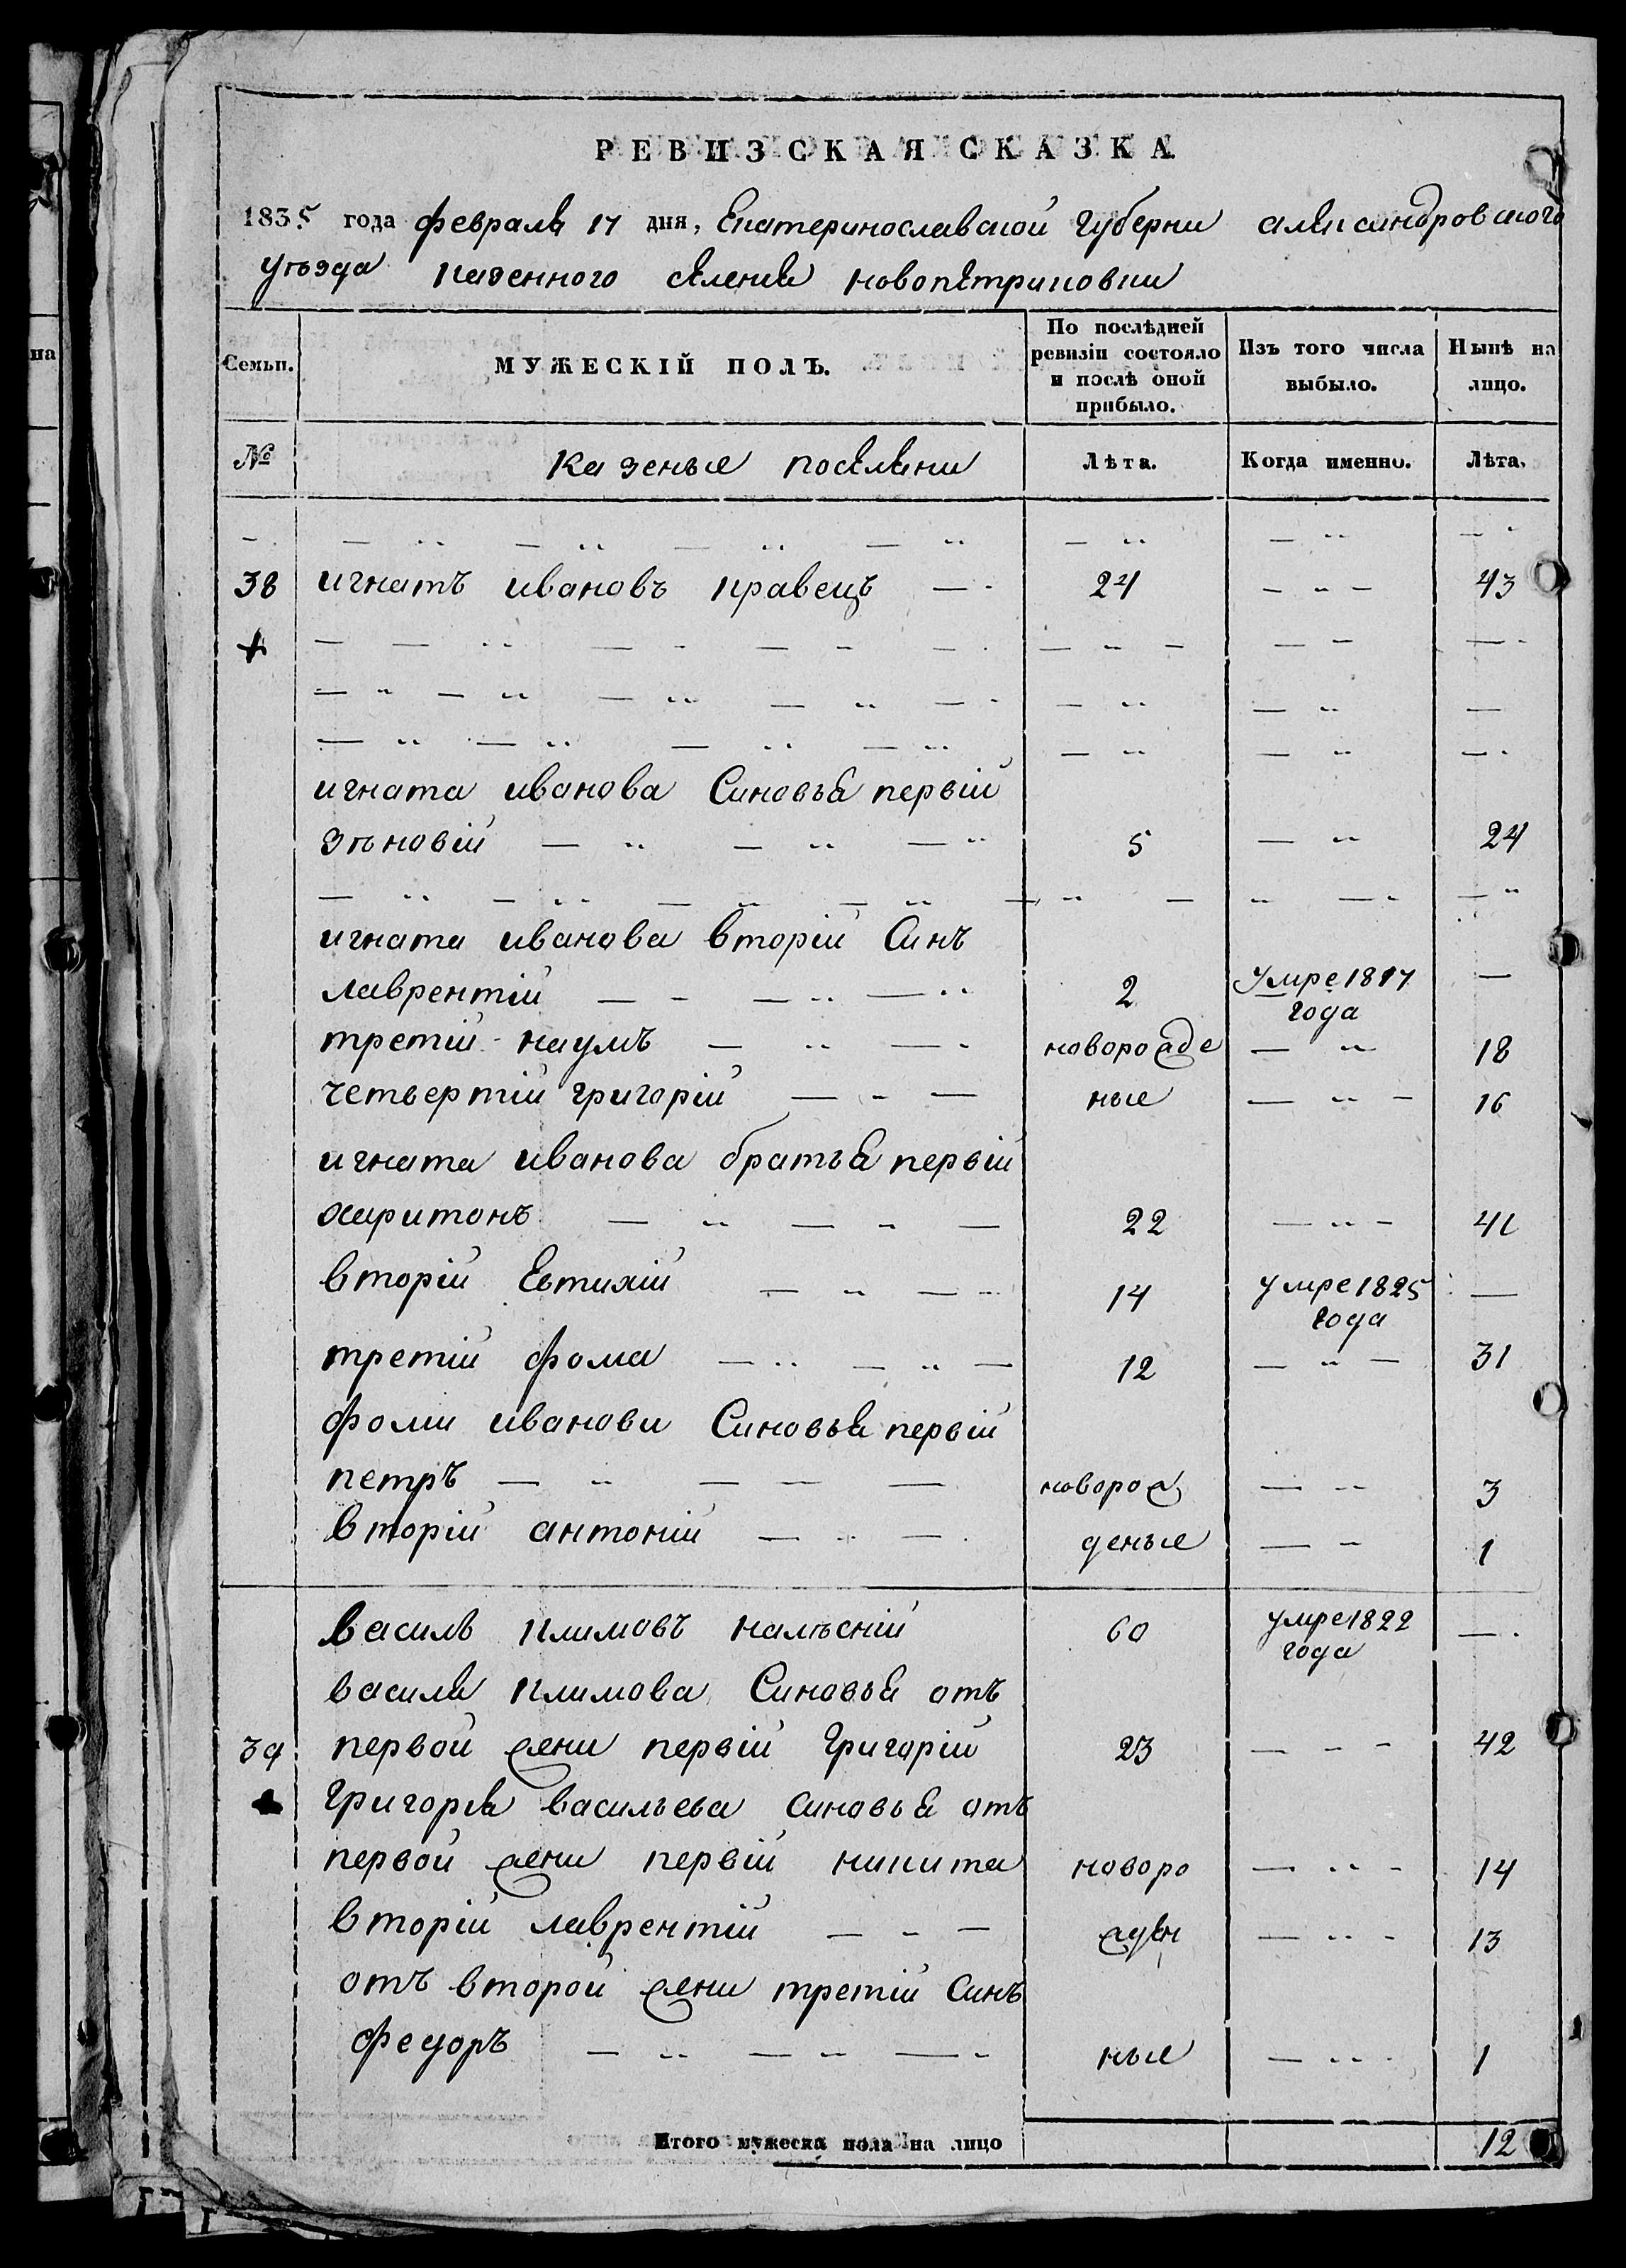 РЕВИЗСКАЯ СКАЗКА.
1835 года февраля 17 дня, Екатеринославской губерни александровского
уъзда казенного селения новопетриковки
Семьи. МУЖЕСКІЙ ПОЛЪ. По послѣдней ревизіи состояло и послѣ оной прибыло. Изъ того числа выбыло. Нынѣ на лицо.
№ Казеные поселяни Лѣта. Когда именно. Лѣта.
38 игнатъ ивановъ кравецъ 24 43
игната иванова Синовья первій
зѣновій 5 24
игната иванова вторій Синъ
лаврентій 2 умре 1817 года
третій наумъ новорожде 18
четвертій григорій ные 16
игната иванова братья первій
харитонъ 22 41
вторій Евтихій 14 умре 1825 года
третій фома 12 31
фоми иванови Синовья первій
петръ новорож 3
вторій антоній деные 1
василь климовъ 60 умре 1822 года
василя климова Синовья отъ
39 первой жени первій Григорій 23 42
Григорія васильева синовья отъ
первой жени первій никита новоро 14
вторій лаврентій жден 13
отъ второй жени третій Синъ
федоръ ные 1
Итого мужеска пола на лицо 12
на